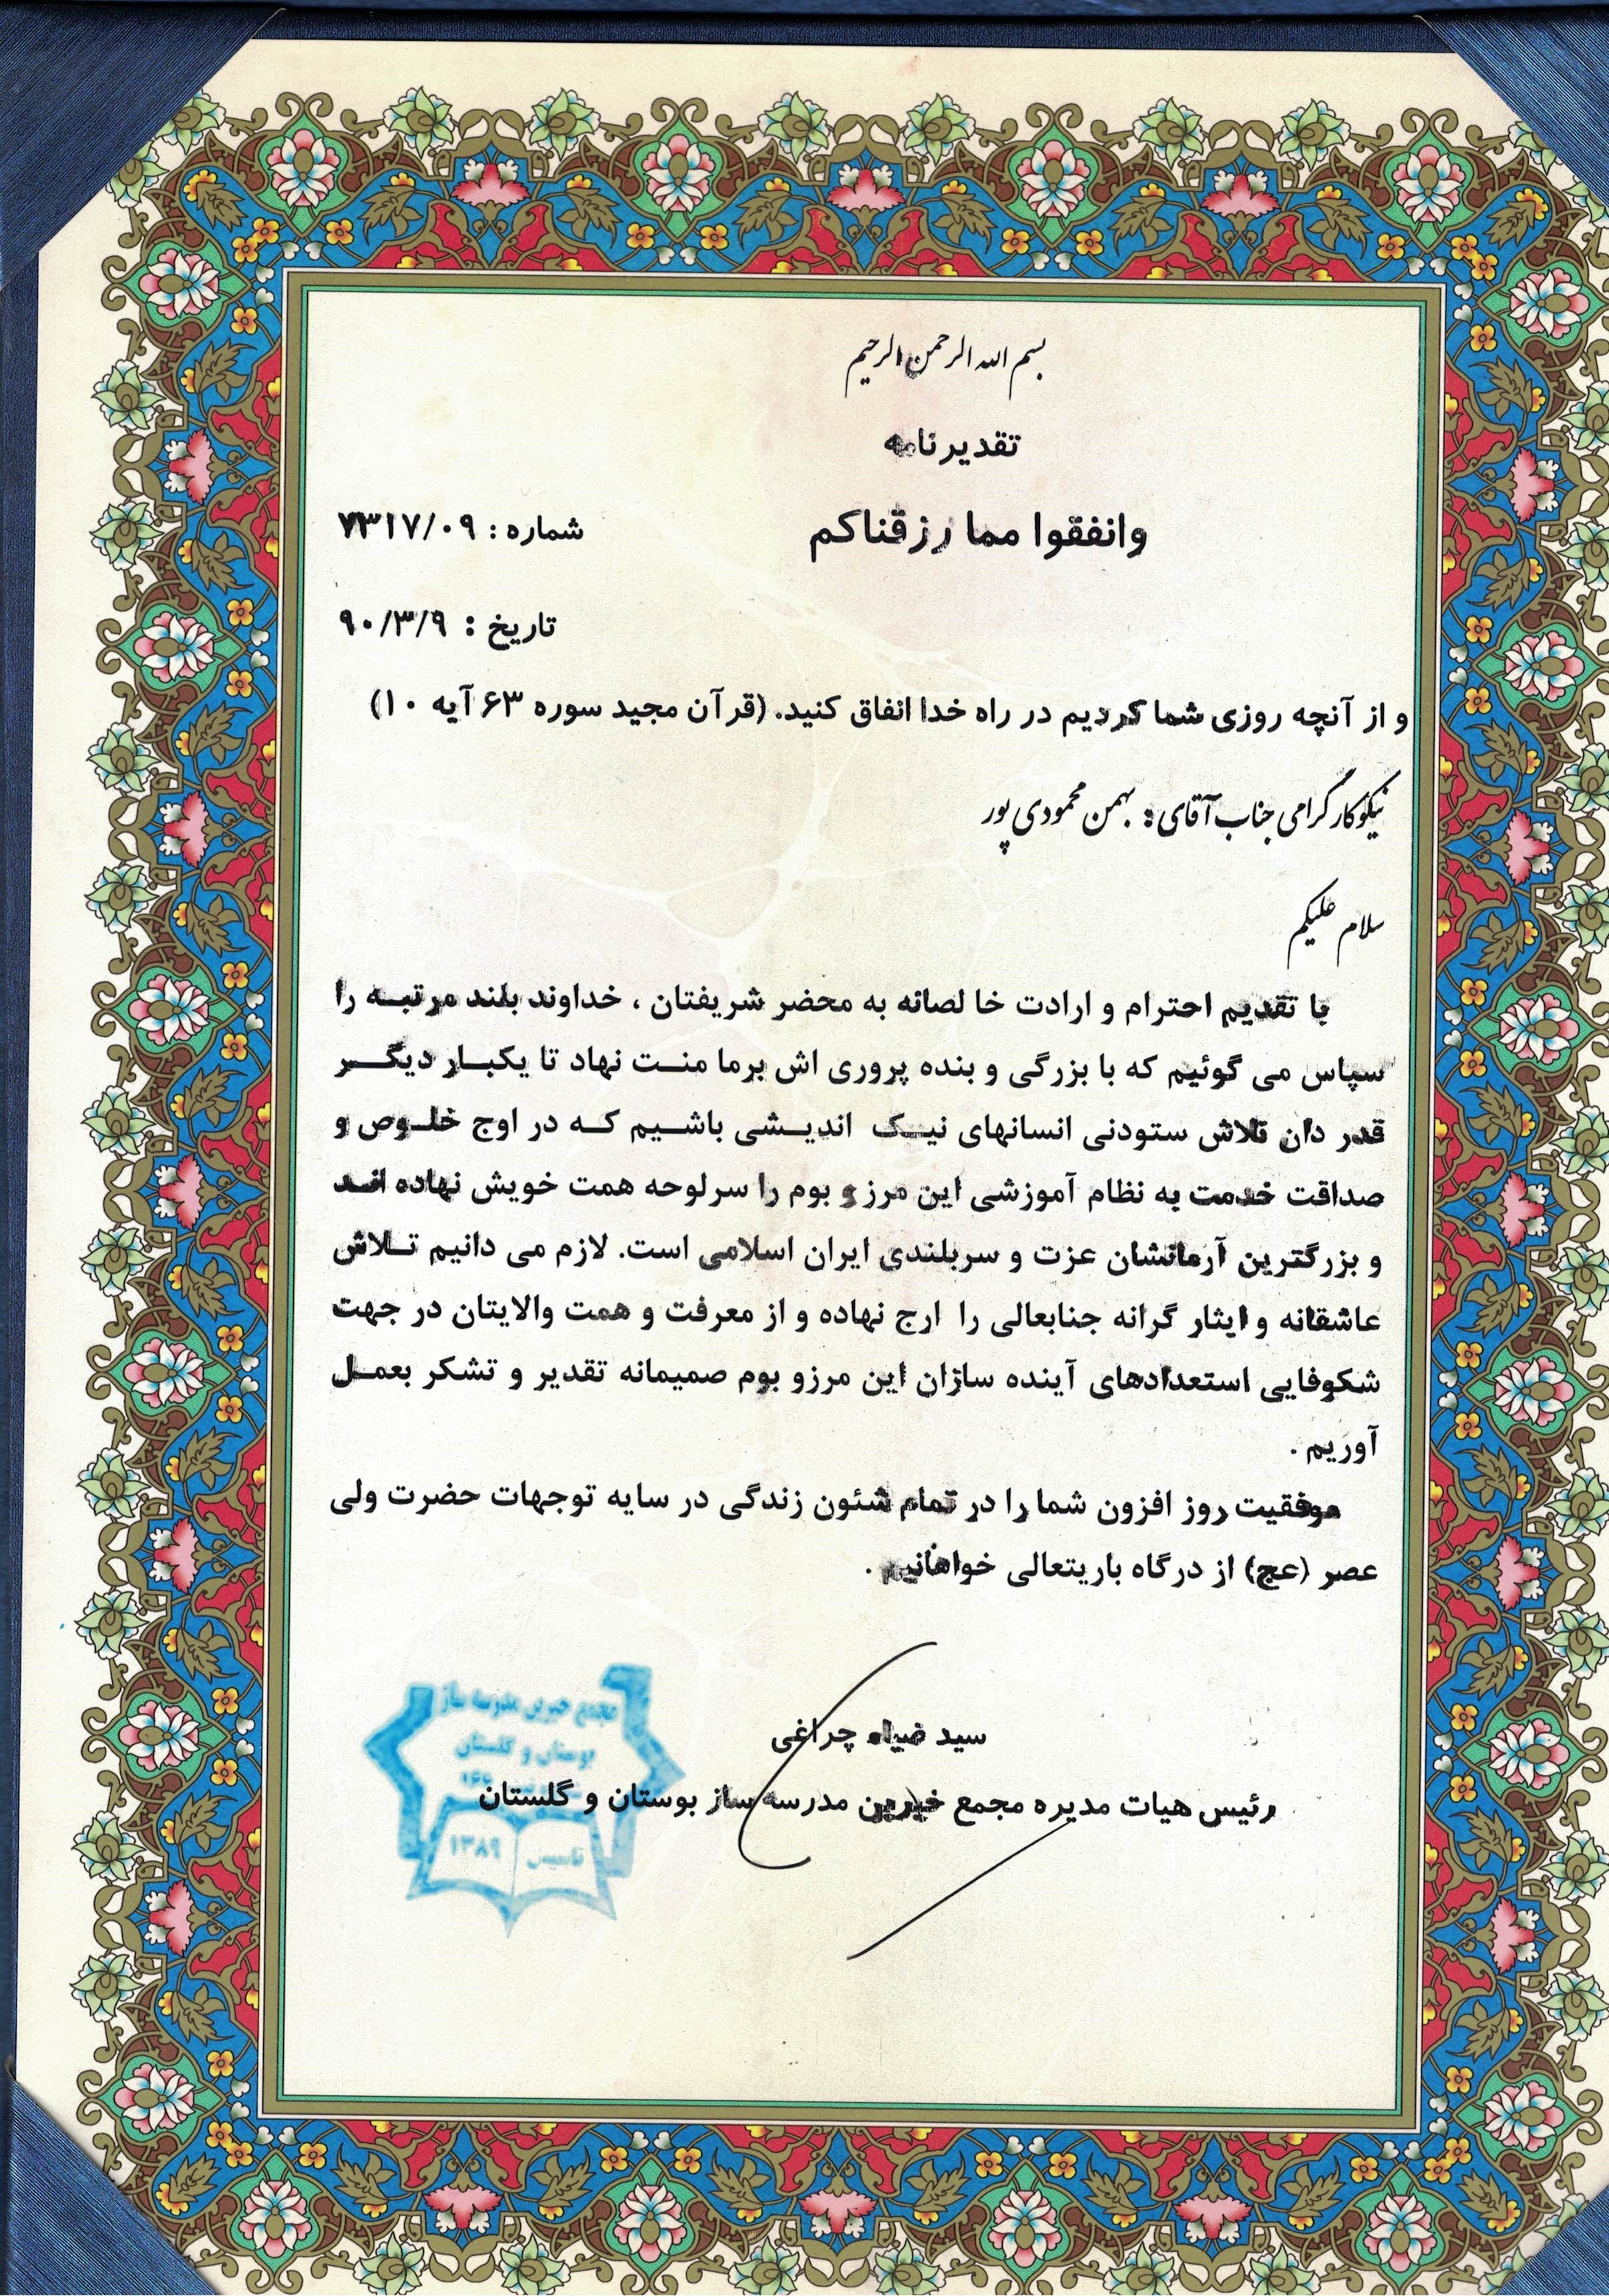 بسم الله الرحمن الرحیم
تقدیرنامه
وانفقوا مما رزقناکم
شماره : ۷۳۱۷/۰۹
تاریخ : ۹۰/۳/۹
و از آنچه روزی شما کردیم در راه خدا انفاق کنید. (قرآن مجید سوره ۶۳ آیه ۱۰)
نیکوکار گرامی جناب آقای : بهمن محمودی پور
سلام علیکم
با تقدیم احترام و ارادت خا لصانه به محضر شریفتان ، خداوند بلند مرتبه را
سپاس می گوئیم که با بزرگی و بنده پروری اش برما منت نهاد تا یکبار دیگر
قدر دان تلاش ستودنی انسانهای نیک اندیشی باشیم که در اوج خلوص و
صداقت خدمت به نظام آموزشی این مرز و بوم را سرلوحه همت خویش نهاده اند
و بزرگترین آرمانشان عزت و سربلندی ایران اسلامی است. لازم می دانیم تلاش
عاشقانه و ایثار گرانه جنابعالی را ارج نهاده و از معرفت و همت والایتان در جهت
شکوفایی استعدادهای آینده سازان این مرزو بوم صمیمانه تقدیر و تشکر بعمل
آوریم .
موفقیت روز افزون شما را در تمام شئون زندگی در سایه توجهات حضرت ولی
عصر (عج) از درگاه باریتعالی خواهانیم .
سید ضیاء چراغی
رئیس هیات مدیره مجمع خیرین مدرسه ساز بوستان و گلستان
مجمع خیرین مدرسه ساز
بوستان و گلستان
تاسیس ۱۳۸۹